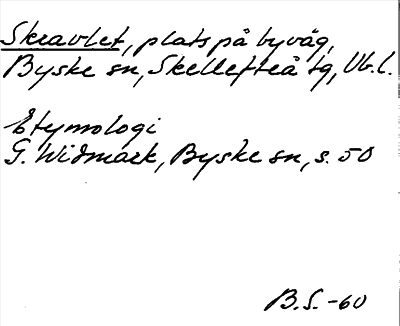 Skravlet, plats på byväg,
Byske sn, Skellefteå tg, Vb.l.
Etymologi
G. Widmark, Byske sn, s. 50
B.S.-60